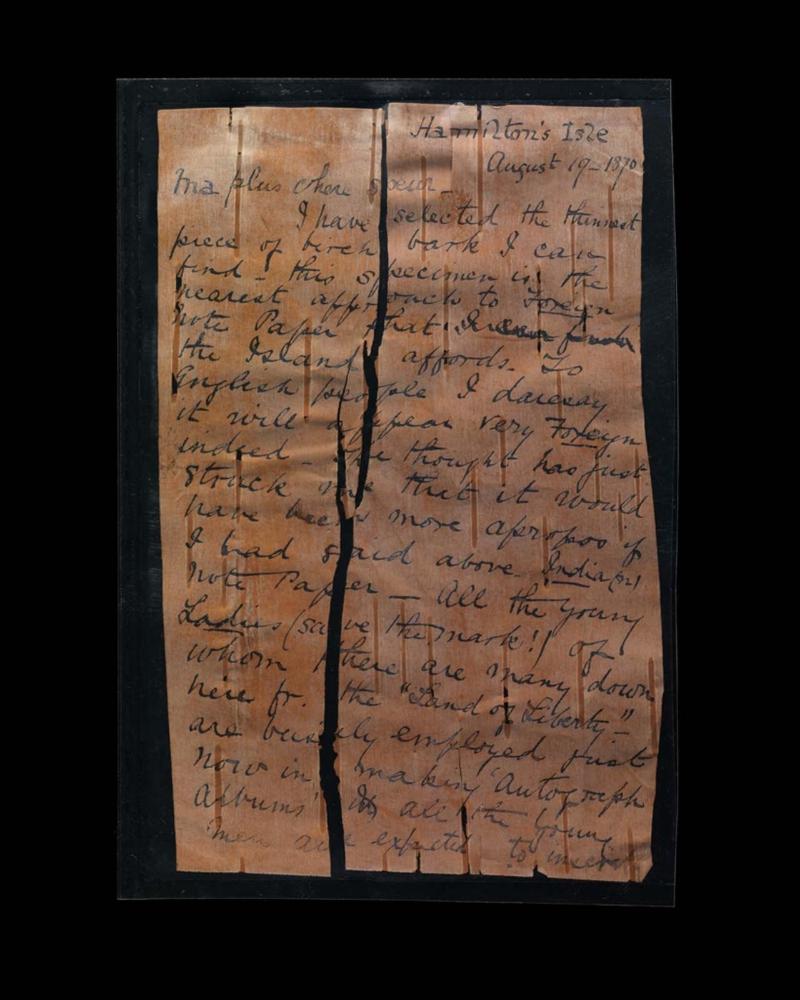 Hamilton's Isle
August 19 – 1870
Ma plus chère soeur –
I have selected the thinnest
piece of birch bark I can
find – this specimen is the
nearest approach to Foreign
Note Paper that
the Island affords. To
English people I daresay
it will appear very Foreign
indeed – The thought has just
struck me that it would
have been more apropos if
I had said above India(n)
Note Paper – All the young
Ladies (save the mark!) of
whom there are many down
here fr. the "Land of Liberty –"
are busily employed just
now in making 'Autograph
Albums' all the young
men are expected to